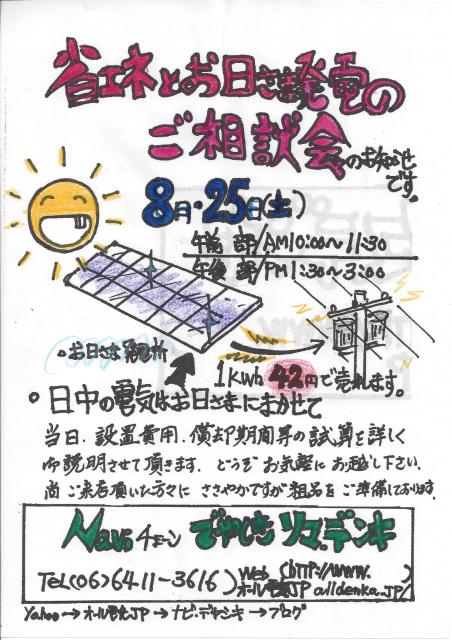 省エネとお日さま発電の
ご相談会のお知らせです。
8月・25日(土)
午前 部/AM10:00~11:30
午後 部/PM1:30~3:00
・お日さま発電所
1KWh 42円で売れます。
・日中の電気はお日さまにまかせて
当日、設置費用、償却期間等の試算を詳しく
御説明させて頂きます、どうぞお気軽にお越し下さい、
尚ご来店頂いた方々にささやかですが粗品をご準備しております。
Navi チェーン でやしきリマ・デンキ
TEL(06)6411-3616
Web (http://www.
オール電化 alldenka.JP/)
Yahoo→オール電化JP→ナビ・デヤシキ→ブログ